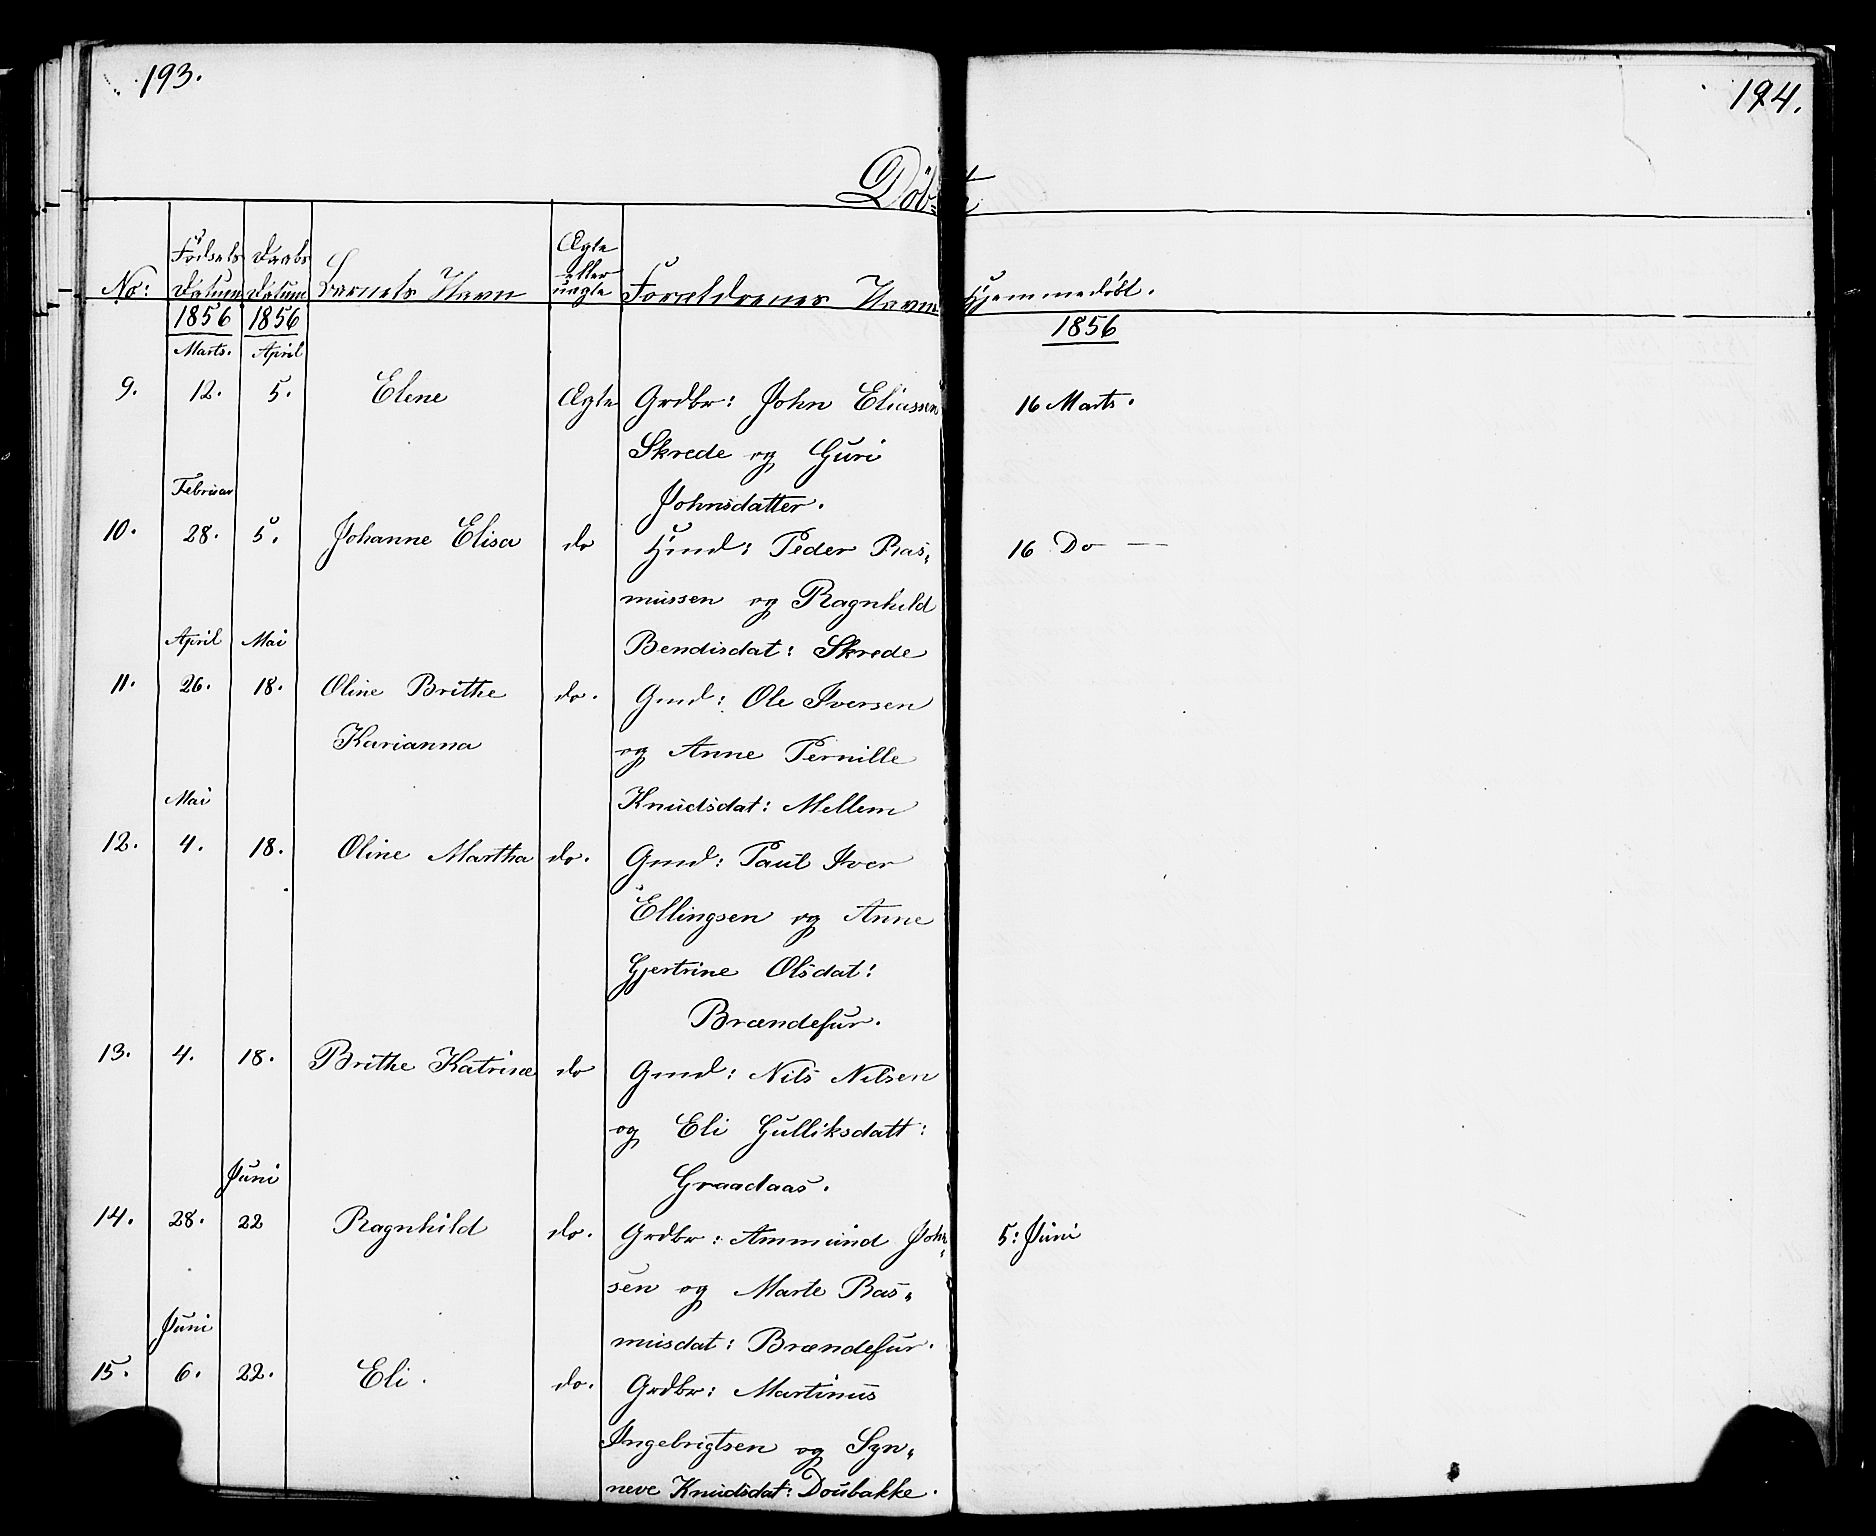 193.
194.
Döbte
No:
Födsels Datum
Daabs Datum
Barnets Navn
Ægte eller uægte
Forældrenes Navn
Hjemmedöbt.
1856 1856 1856
Marts. April
9. 12. 5. Elene Ægte Grdbr: John Eliassen 16 Marts.
Skrede og Guri
Februar Johnsdatter.
10. 28. 5. Johanne Elisa do Hmd: Peder Ras- 16 Do —
mussen og Ragnhild
April Mai Bendisdat: Skrede
11. 26. 18. Oline Brithe do. Gmd: Ole Iversen
Karianna og Anne Pernille
Mai Knudsdat: Mellem
12. 4. 18. Oline Martha do. Gmd: Paul Iver
Ellingsen og Anne
Gjertrine Olsdat:
Brændefur.
13. 4. 18. Brithe Katrine do Gmd: Nils Nilsen
og Eli Gulliksdatt:
Juni Graadaas.
14. 28. 22 Ragnhild do. Grdbr: Ammund John- 5: Juni
sen og Marte Ras-
Juni musdat: Brændefur.
15. 6. 22. Eli. do. Grdbr: Martinus
Ingebrigtsen og Syn-
neve Knudsdat: Dousbakke.